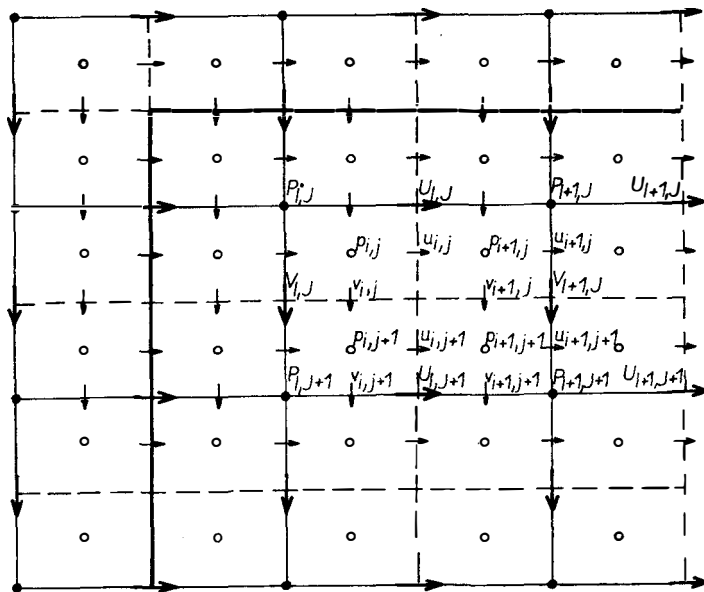 P_I,J U_I,J P_I+1,J U_I+1,J
p_i,j u_i,j p_i+1,j u_i+1,j
V_I,J v_i,j v_i+1,j V_I+1,J
p_i,j+1 u_i,j+1 p_i+1,j+1 u_i+1,j+1
P_I,J+1 v_i,j+1 U_I,J+1 v_i+1,j+1 P_I+1,J+1 U_I+1,J+1